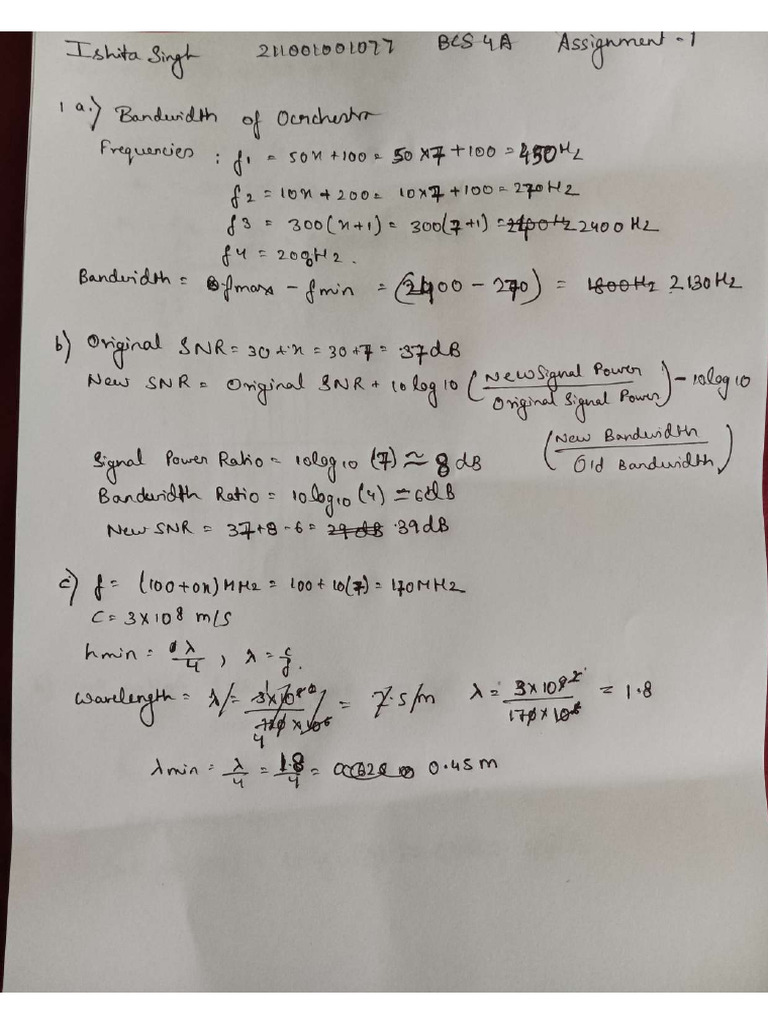 Ishita Singh 211001001077 BCS 4A Assignment - 1
1 a.) Bandwidth of Ocrchestra
Frequencies : f1 = 50x+100 = 50×7+100 = 450Hz
f2 = 10x+200 = 10×7+100 = 270Hz
f3 = 300(x+1) = 300(7+1) = 2400Hz
f4 = 200Hz.
Bandwidth = fmax - fmin = (2400-270) = 1800Hz 2130Hz
b) Original SNR = 30+x = 30+7 = 37dB
New SNR = Original SNR + 10log10 (New Signal Power / Original Signal Power) - 10log10
(New Bandwidth / Old Bandwidth)
Signal Power Ratio = 10log10 (7) ≈ 8 dB
Bandwidth Ratio = 10log10 (4) = 6dB
New SNR = 37+8-6 = 29dB 39dB
c) f = (100+0x)MHz = 100+10(7) = 170MHz
C = 3×10^8 m/s
hmin = λ/4, λ = c/f.
Wavelength = λ = = 7.5/m λ = 3×10^8 / 170×10^6 = 1.8
λmin = λ/4 = 1.8/4 = 0.45m